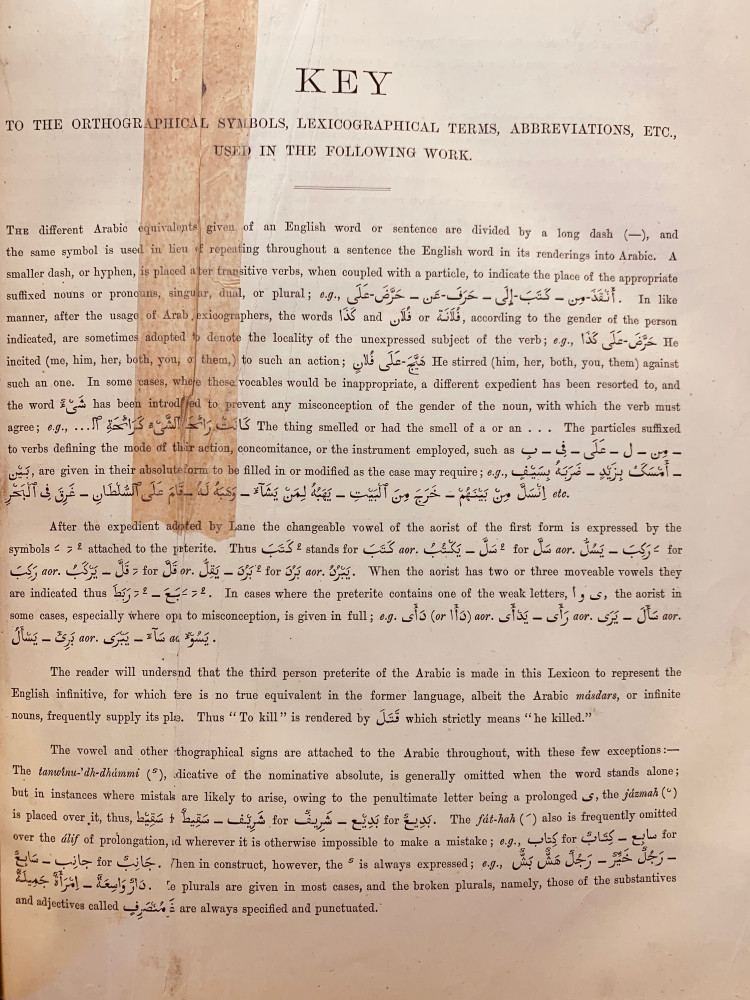 KEY
TO THE ORTHOGRAPHICAL SYMBOLS, LEXICOGRAPHICAL TERMS, ABBREVIATIONS, ETC.,
USED IN THE FOLLOWING WORK.
THE different Arabic equivalents given of an English word or sentence are divided by a long dash (—), and
the same symbol is used in lieu of repeating throughout a sentence the English word in its renderings into Arabic. A
smaller dash, or hyphen, is placed after transitive verbs, when coupled with a particle, to indicate the place of the appropriate
suffixed nouns or pronouns, singular, dual, or plural; e.g., أَنْقَذَ-مِن – كَتَبَ-إِلَى – حَرَفَ-عَن – حَرَّضَ-عَلَى. In like
manner, after the usage of Arab exicographers, the words كَذَا and فُلَان or فُلَانَة, according to the gender of the person
indicated, are sometimes adopted to denote the locality of the unexpressed subject of the verb; e.g., حَرَّضَ-عَلَى كَذَا He
incited (me, him, her, both, you, or them,) to such an action; هَيَّجَ-عَلَى فُلَانٍ He stirred (him, her, both, you, them) against
such an one. In some cases, where these vocables would be inappropriate, a different expedient has been resorted to, and
the word شَىْء has been introd to prevent any misconception of the gender of the noun, with which the verb must
agree; e.g., كَانَتْ رَائِحَةُ الشَّىْء كَرَائِحَةِ الـ... The thing smelled or had the smell of a or an . . . The particles suffixed
to verbs defining the mode of their action, concomitance, or the instrument employed, such as مِن – ل – عَلَى – فِى – بِ –
بَيْن, are given in their absolute form to be filled in or modified as the case may require; e.g., أَمْسَكَ بِزَيْدٍ – ضَرَبَهُ بِسَيْفٍ –
اِنْسَلَّ مِنْ بَيْنِهِمْ – خَرَجَ مِنَ الْبَيْتِ – يَهَبُهُ لِمَنْ يَشَآءُ – وَهَبَهُ لَهُ – قَامَ عَلَى السُّلْطَانِ – غَرِقَ فِى الْبَحْرِ etc.
After the expedient adopted by Lane the changeable vowel of the aorist of the first form is expressed by the
symbols attached to the preterite. Thus كَتَبَ stands for كَتَبَ aor. يَكْتُبُ – سَلَّ for سَلَّ aor. يَسُلُّ – رَكِبَ for
رَكِبَ aor. يَرْكَبُ – قَلَّ for قَلَّ aor. يَقِلُّ – بَرُدَ for بَرُدَ aor. يَبْرُدُ. When the aorist has two or three moveable vowels they
are indicated thus رَبَطَ – نَبَعَ. In cases where the preterite contains one of the weak letters, ى و ا, the aorist in
some cases, especially where open to misconception, is given in full; e.g. دَأَى (or دَأَا) aor. يَدْأَى – رَأَى aor. يَرَى – سَأَلَ aor.
يَسْأَلُ – بَرِئَ aor. يَبْرَى – سَآءَ aor. يَسُوْءُ.
The reader will understand that the third person preterite of the Arabic is made in this Lexicon to represent the
English infinitive, for which there is no true equivalent in the former language, albeit the Arabic másdars, or infinite
nouns, frequently supply its place. Thus "To kill" is rendered by قَتَلَ which strictly means "he killed."
The vowel and other orthographical signs are attached to the Arabic throughout, with these few exceptions:—
The tanwínu-'dh-dhámmi (ٌ), indicative of the nominative absolute, is generally omitted when the word stands alone;
but in instances where mistakes are likely to arise, owing to the penultimate letter being a prolonged ى, the jázmah (ْ)
is placed over it, thus, سَقِيْط for سَقِيطٌ – شَرِيْف for شَرِيفٌ – بَدِيْع for بَدِيعٌ. The fát-hah (َ) also is frequently omitted
over the álif of prolongation, and wherever it is otherwise impossible to make a mistake; e.g., كِتاب for كِتَابٌ – سابِع for
سَابِعٌ – جانِب for جَانِبٌ. When in construct, however, the ٌ is always expressed; e.g., رَجُلٌ خَيِّرٌ – رَجُلٌ هَشٌّ بَشٌّ –
دَارٌ وَاسِعَةٌ – اِمْرَأَةٌ جَمِيلَةٌ. The plurals are given in most cases, and the broken plurals, namely, those of the substantives
and adjectives called غَيْرُ مُنْصَرِفٍ are always specified and punctuated.